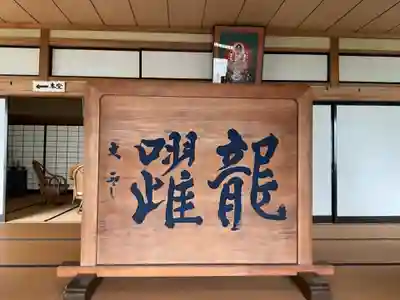 龍躍
←本堂